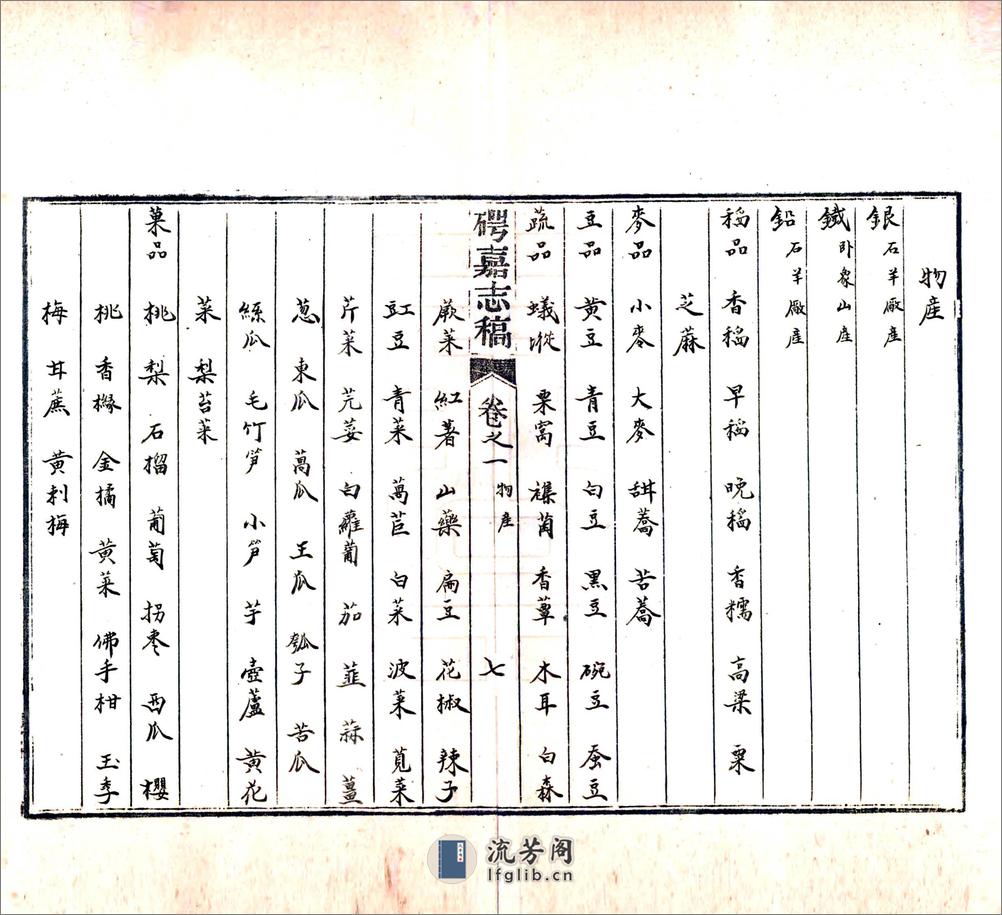 物産
銀 石羊廠産
鐵 卧象山産
鉛 石羊廠産
稻品 香稻 早稻 晚稻 香糯 高梁 粟
芝蔴
麥品 小麥 大麥 甜蕎 苦蕎
豆品 黄豆 青豆 白豆 黑豆 碗豆 蚕豆
蔬品 蟻㙡 栗窩 襍菌 香蕈 木耳 白森
碍嘉志稿 卷之一 物産 七
蕨菜 紅薯 山藥 扁豆 花椒 辣子
豇豆 青菜 萵苣 白菜 波菜 莧菜
芹菜 芫荽 白蘿蔔 茄 韮 蒜 薑
葱 東瓜 萵瓜 王瓜 瓠子 苦瓜
絲瓜 毛竹笋 小笋 芋 壺蘆 黄花
菜 梨苔菜
菓品 桃 梨 石榴 葡萄 拐枣 西瓜 櫻
桃 香櫞 金橘 黄菜 佛手柑 玉季
梅 甘蕉 黄刺梅
流芳阁
lfglib.cn